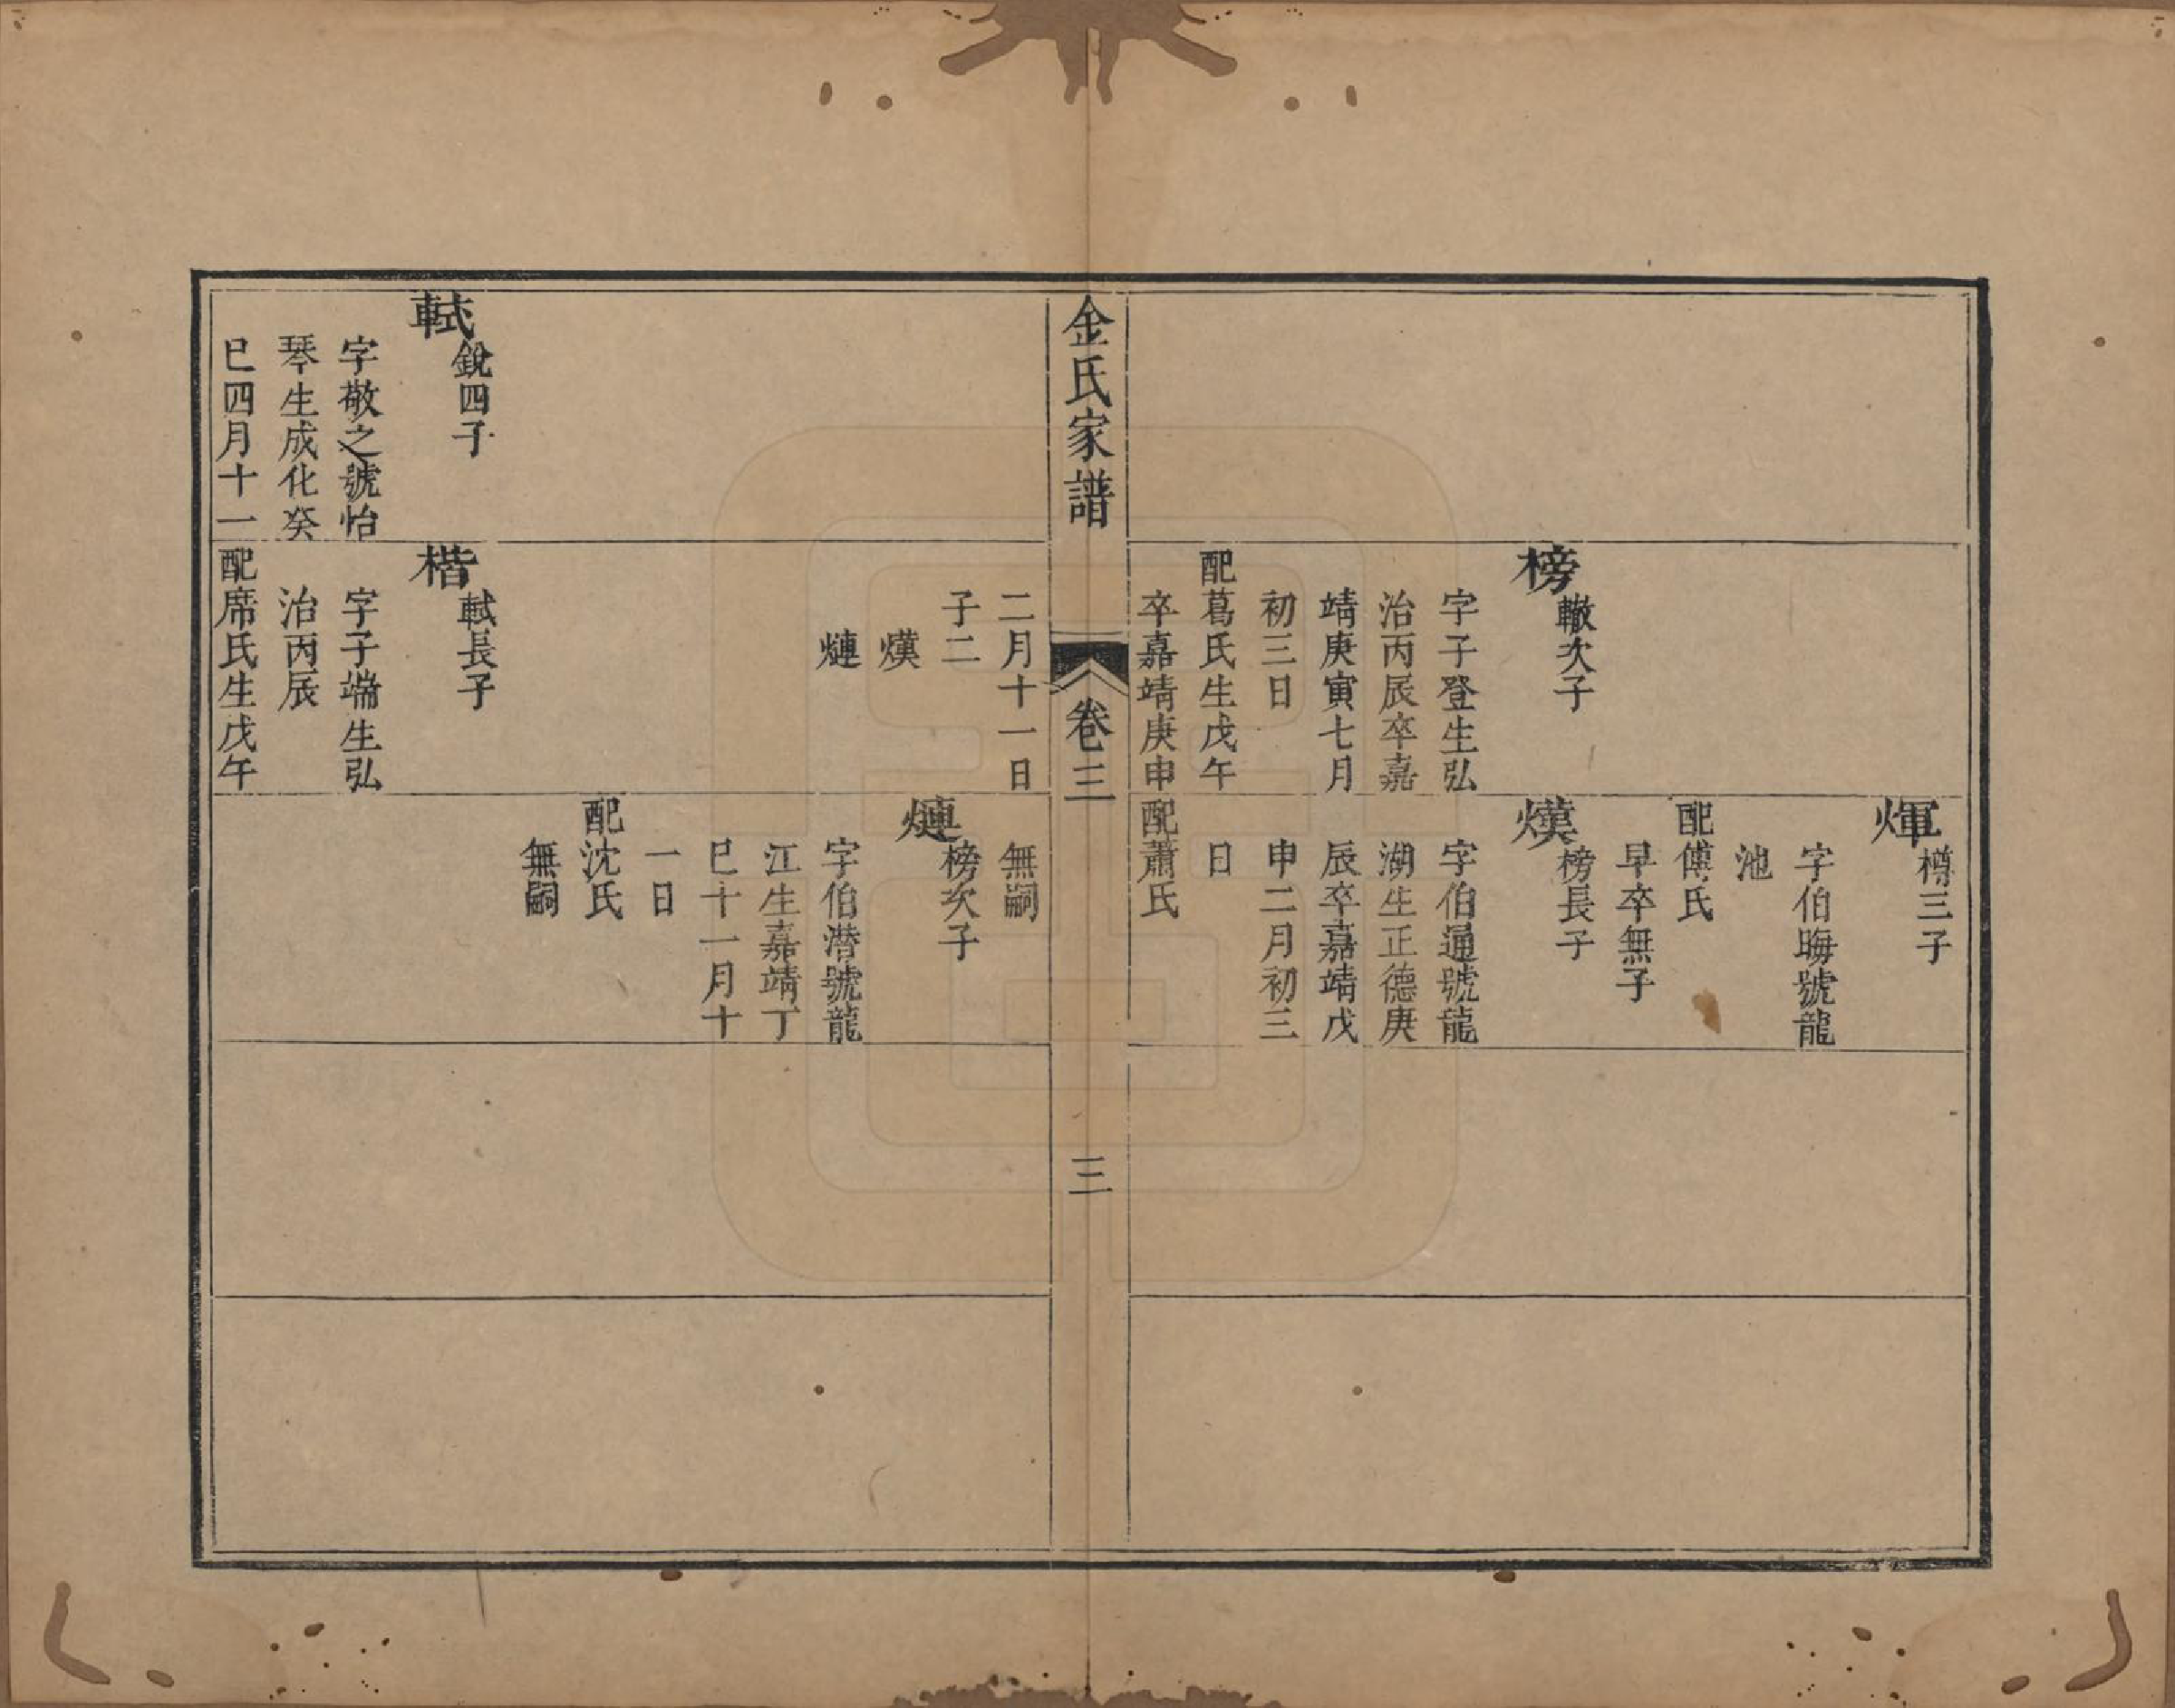 煇
樽三子
字伯晦號龍
池
配傅氏
早卒無子
榜
轍次子
字子登生弘
治丙辰卒嘉
靖庚寅七月
初三日
配葛氏生戊午
卒嘉靖庚申
熯
榜長子
字伯通號龍
湖生正德庚
辰卒嘉靖戊
申二月初三
日
配蕭氏
金氏家譜
卷三
三
二月十一日
子二
熯
熑
無嗣
榜次子
字伯潛號龍
江生嘉靖丁
巳十一月十
一日
配沈氏
無嗣
軾
銳四子
字敬之號怡
琴生成化癸
巳四月十一
楷
軾長子
字子端生弘
治丙辰
配席氏生戊午